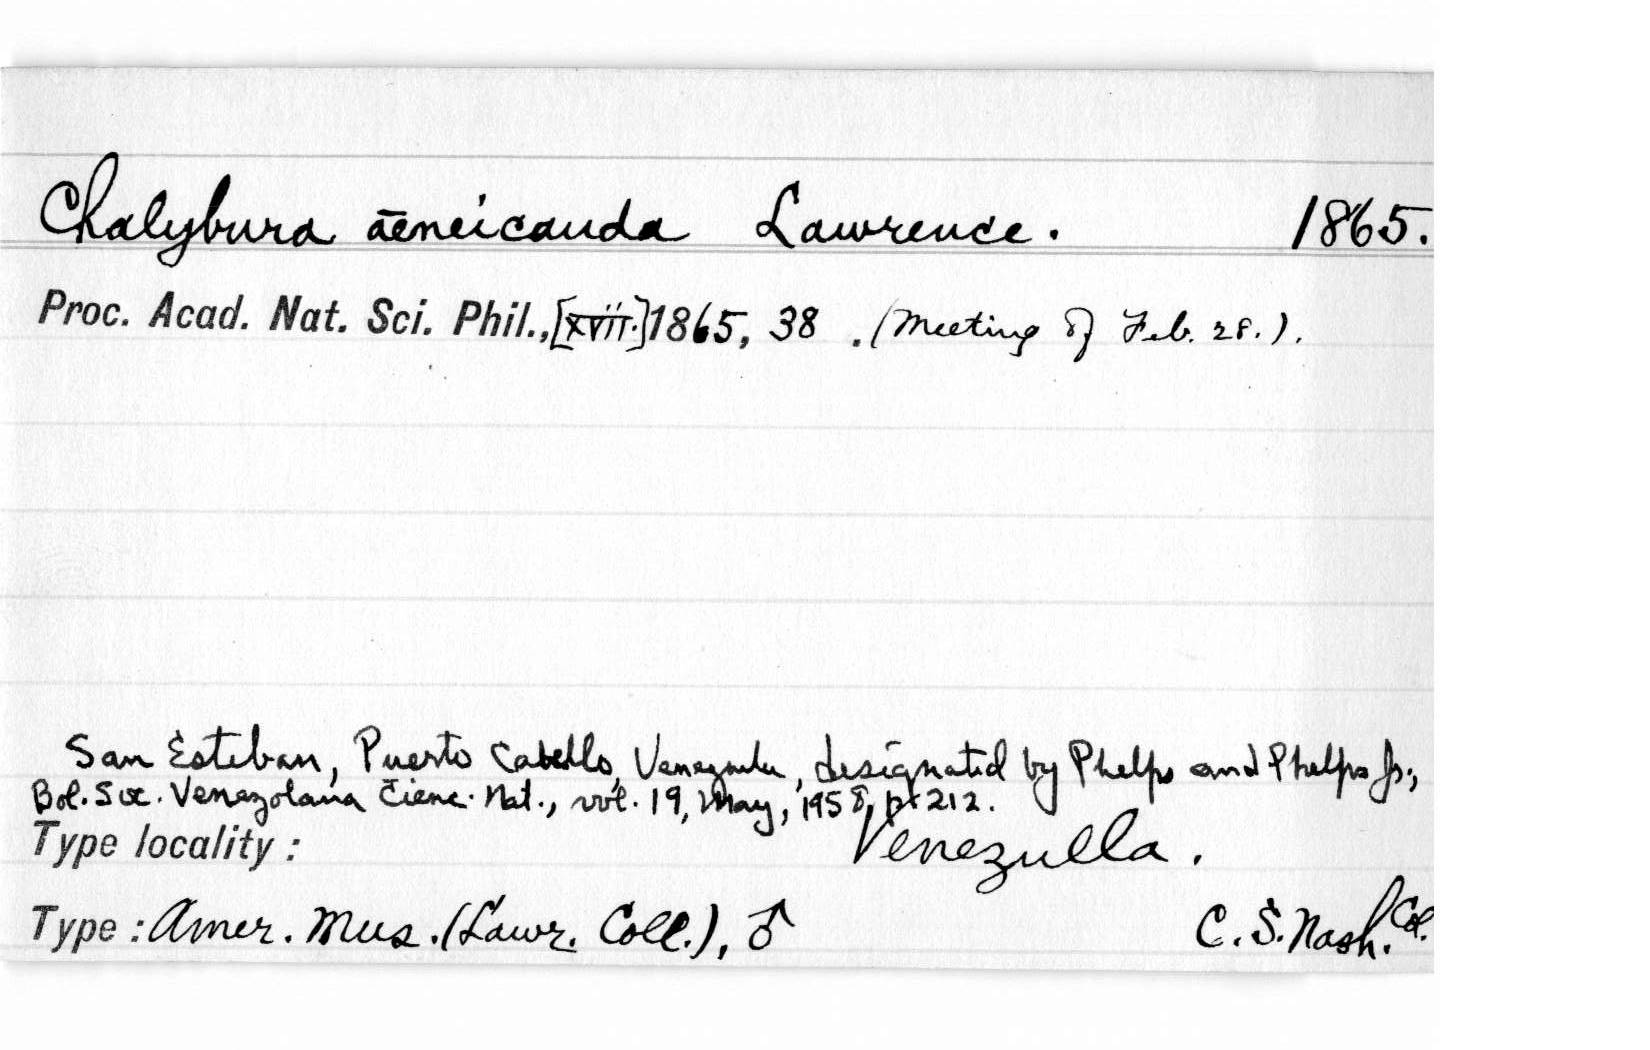 Chalybura āeneicauda Lawrence. 1865.
Proc. Acad. Nat. Sci. Phil., [xvii.] 1865, 38 . (Meeting of Feb. 28.).
San Esteban, Puerto Cabello, Venezuela, designated by Phelps and Phelps Jr.,
Bol. Soc. Venezolana Cienc. Nat., vol. 19, May, 1958, p. 212.
Type locality : Venezulla.
Type : Amer. Mus. (Lawr. Coll.), ♂ C. S. Nash. Col.